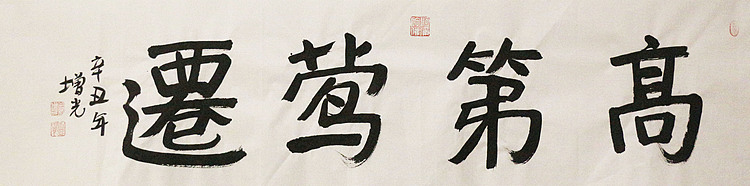 高第莺遷
辛丑年
增光